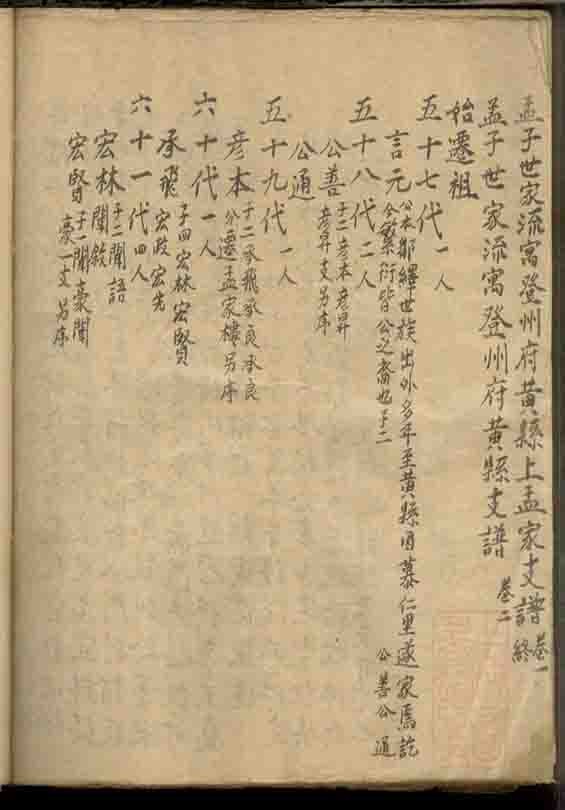 孟子世家流寓登州府黄縣上孟家支譜 卷一終
孟子世家流寓登州府黄縣支譜 卷二
始遷祖
五十七代一人
言元 公本鄒繹世族出外多年至黄縣慕仁里遂家焉訖
今繁衍皆公之裔也子二 公善公通
五十八代二人
公善 子二彦本彦昇
彦昇支另序
公通
五十九代一人
彦本 子二承飛承良承良
分遷孟家樓另序
六十代一人
承飛 子四宏林宏賢
宏政宏先
六十一代四人
宏林 子二聞語
聞敘
宏賢 子一聞豪聞
豪一支另序